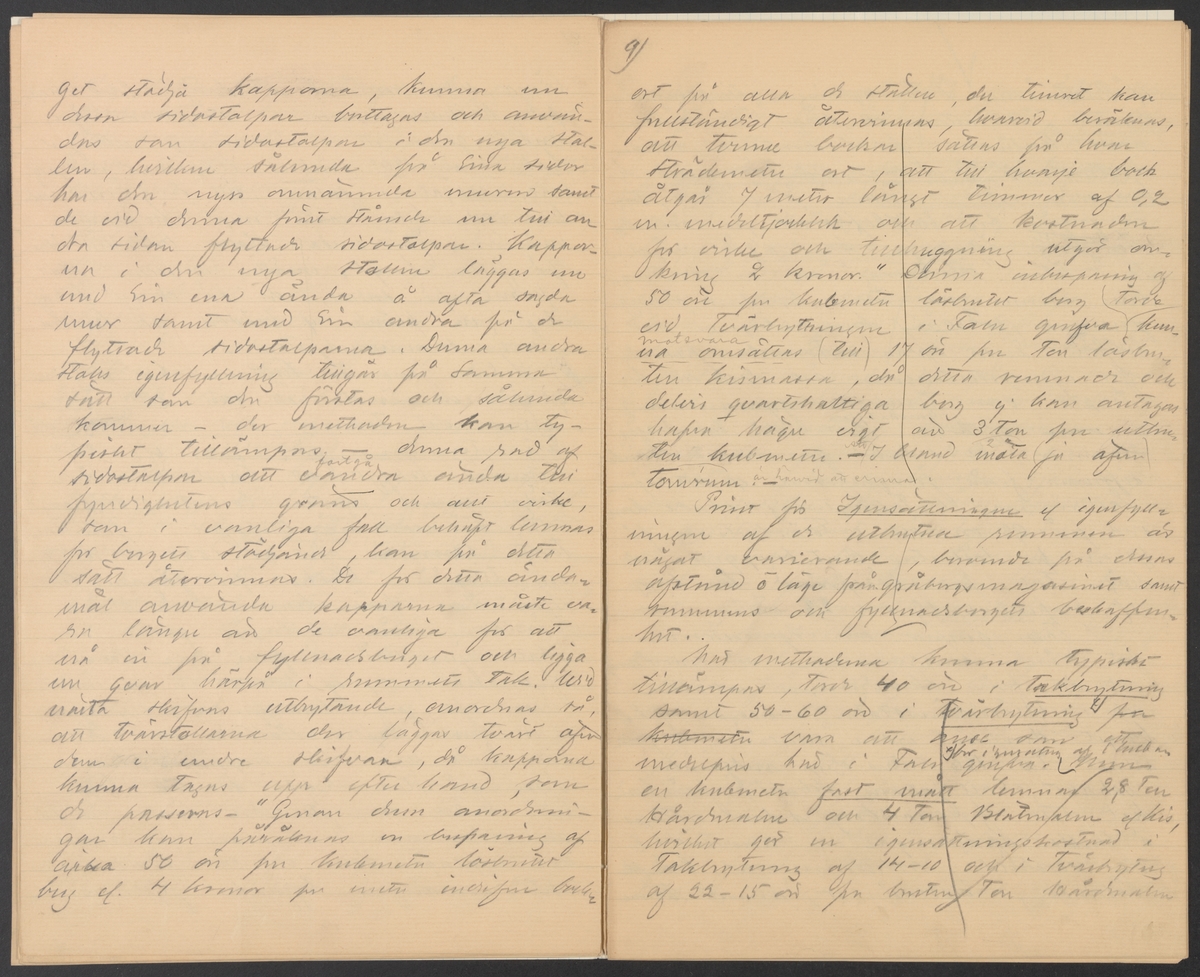 get stödja kapporna, kunna nu
dessa sidostolpar borttagas och använ-
das som sidostolpar i den nya stol-
len, hvilken sålunda på ena sidan
har den nyss omnämnda muren samt
de vid denna förut stående nu till an-
dra sidan flyttade sidostolpar. Kappor-
na i den nya stollen läggas nu
med sin ena ända å ofta sagda
mur samt med sin andra på de
flyttade sidostolparna. Denna andra
stolls igenfyllning tillgår på samma
sätt som den förstas och sålunda
kommer – der methoden kan ty-
piskt tillämpas denna rad af
sidostolpar att vandra ända till
fortgå
fyndighetens gräns och allt virke,
som i vanliga fall behöft lemnas
för bergets stödjande, kan på detta
sätt återvinnas. De för detta ända-
mål använda kapporna måste va-
ra längre än de vanliga för att
nå in på fyllnadsberget och ligga
nu qvar härpå i rummets tak. Vid
nästa skifvas utbrytande, anordnas så,
att tvärstollarna der läggas tvärt öfver
dem i undre skifvan, då kapporna
kunna tagas upp efter hand, som
de passeras – "Genom denna anordnin-
gar kan påräknas en besparing af
cirka 50 öre per kubikmeter lösbrutet
berg el. 4 kronor per meter indrifven bock-
9)
ort på alla de ställen, der timret kan
fullständigt återvinnas, hvarvid beräknas,
att tvenne bockar sättas på hvar
sträckmeter ort, att till hvarje bock
åtgår 7 meter långt timmer af 0,2
m. medeltjocklek och att kostnaden
för virke och tillhuggning utgör om-
kring 2 kronor." Denna inbesparing af
50 öre per kubikmeter lösbrutet berg (torde
vid Tvärbrytningen i Falu grufva (kun-
motsvara
na omsättas (till) 17 öre per ton lösbru-
ten kismassa, då detta remnade och
delvis qvartshaltiga berg ej kan antagas
hafva högre vigt än 3 ton per utbru-
ten kubikmeter. – I bland måla ju äfven
tomrum. –
Priset för Igensättningen el. igenfyll-
ningen af de utbrutna rummen är
något varierande, beroende på dessas
afstånd o läge från gråbergsmagasinet samt
rummens och fyllnadsbergets beskaffen-
het.
Når methoderna kunna typiskt
tillämpas, torde 40 öre i takbrytning
samt 50–60 öre i tvärbrytning per
kubikmeter vara att anse som ett
för igensättning af
medelpris vid i Falu grufva.
en kubikmeter fast mått lemnar 2,8 ton
Hårdmalm och 4 ton Blötmalm el. kis,
hvilket gör en igensättningskostnad i
Takbrytning af 14–10 och i tvärbrytning
af 22–15 öre per bruten ton Hårdmalm